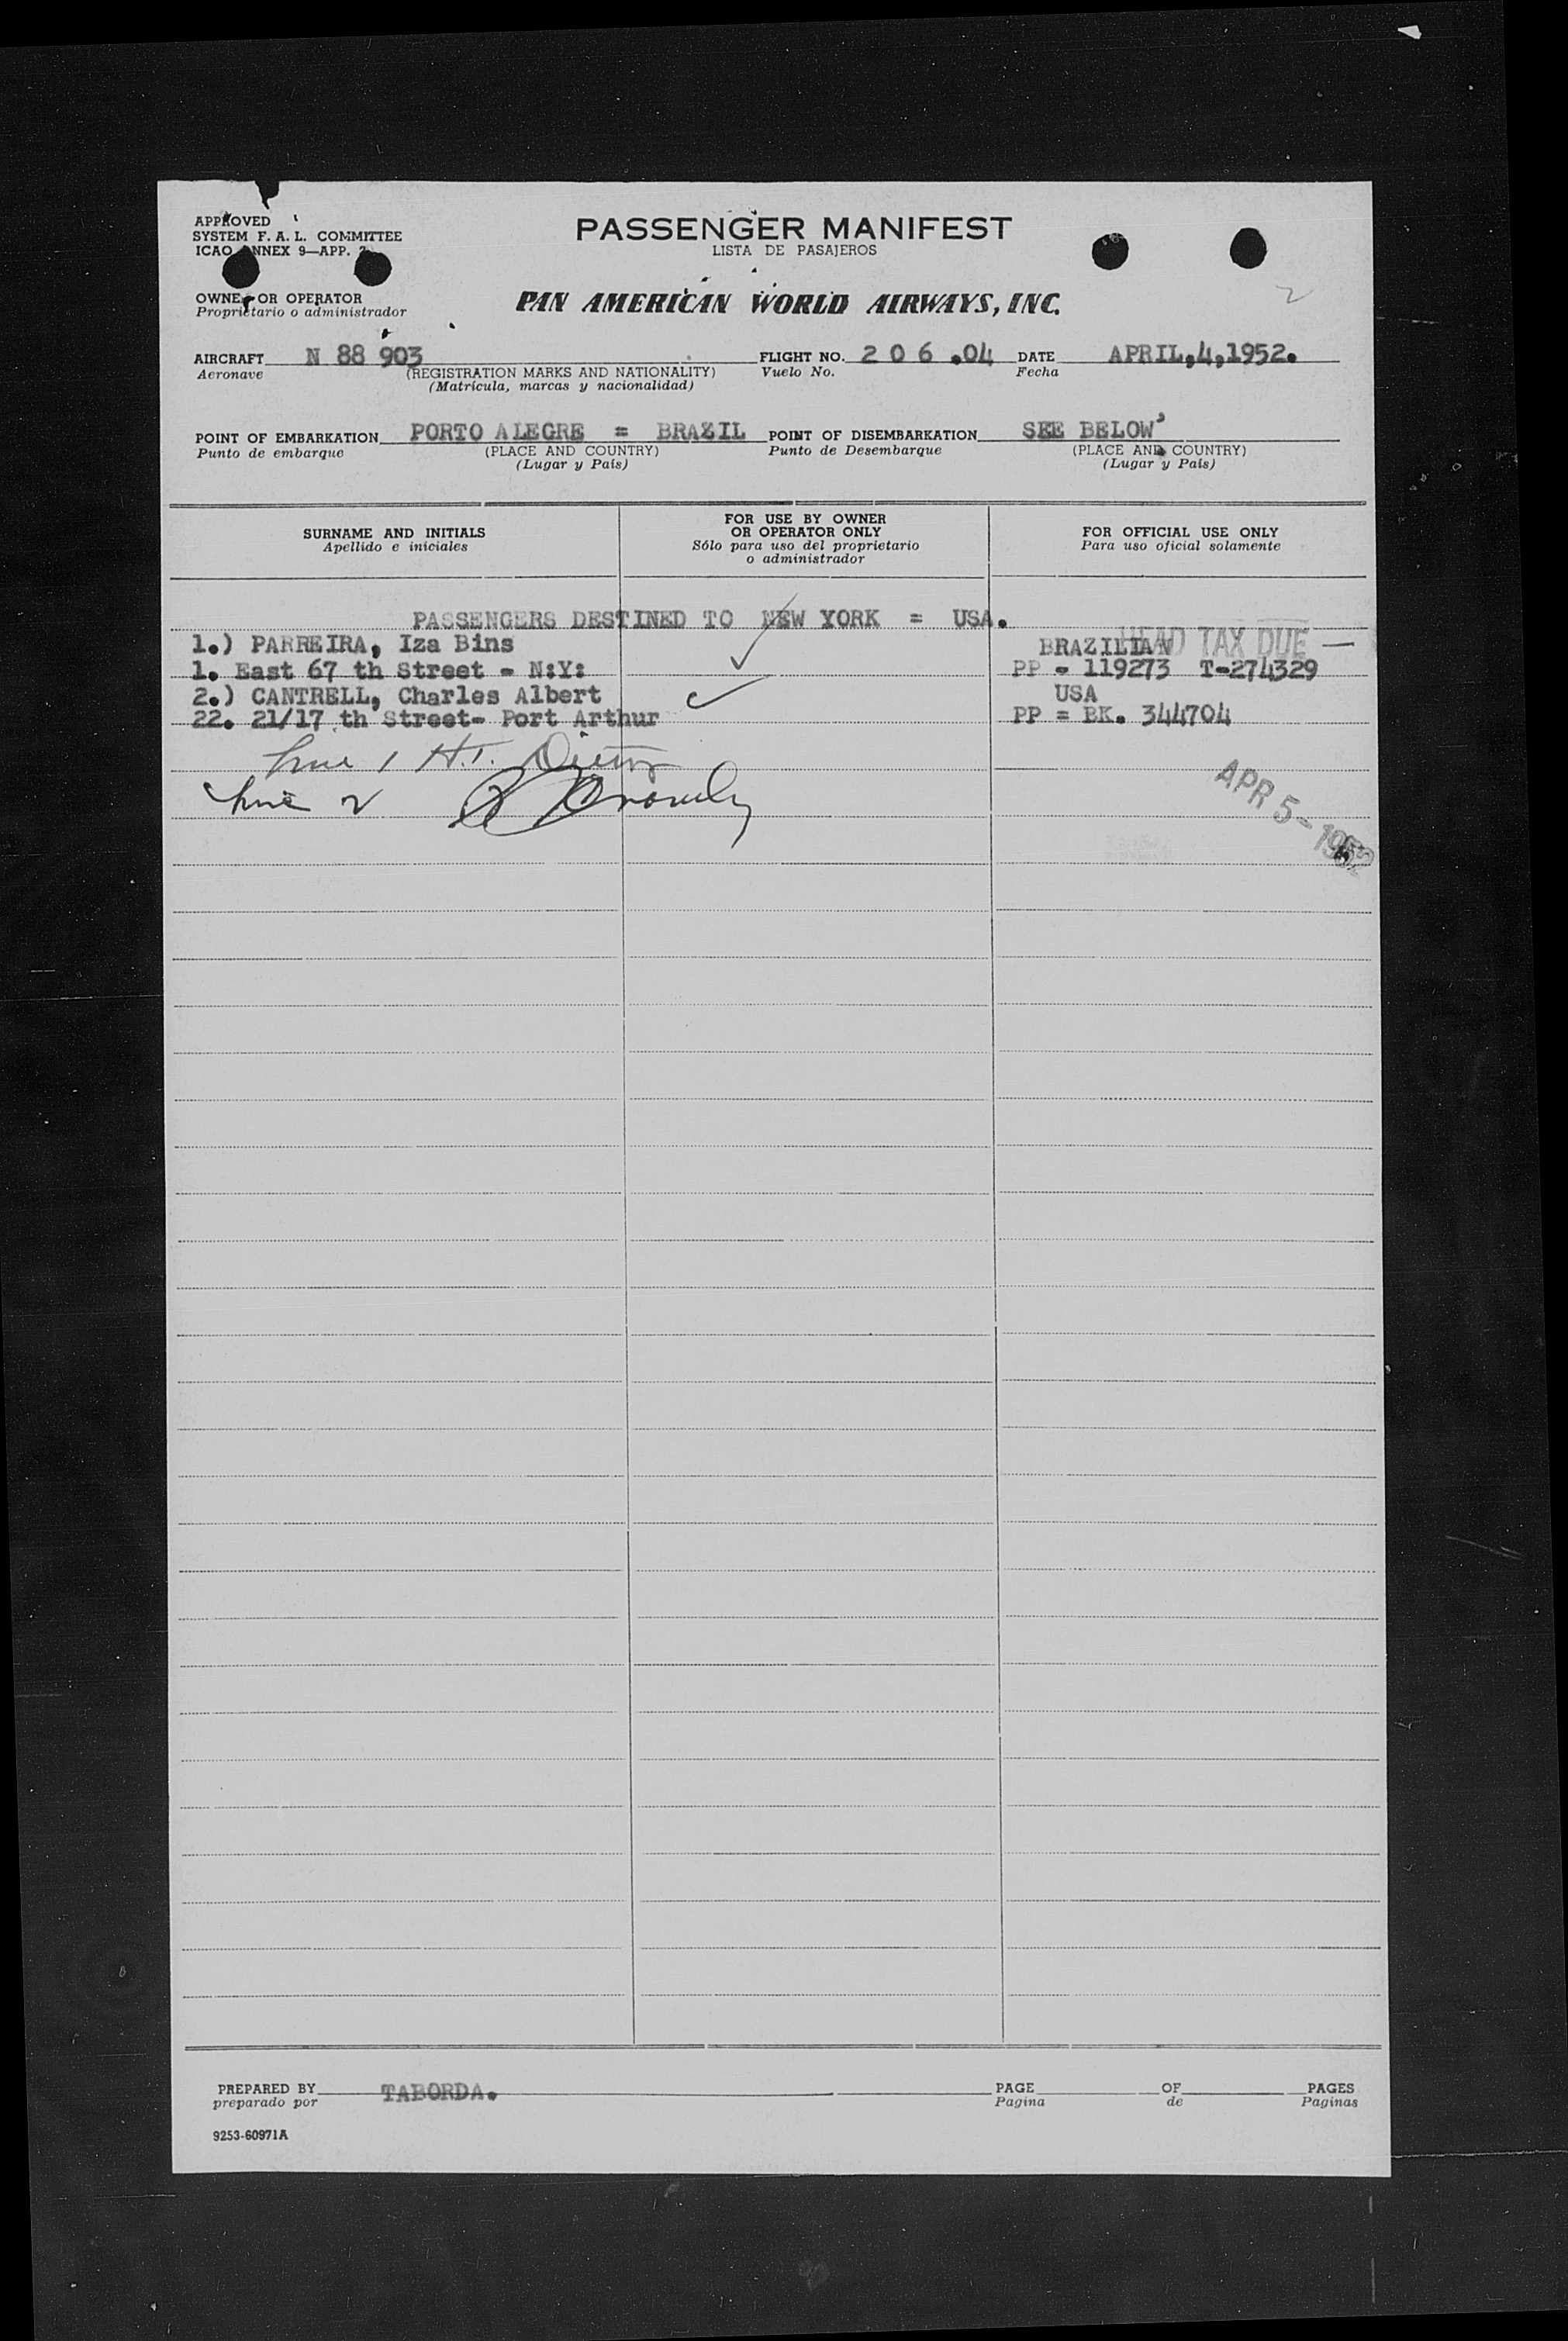 APPROVED
SYSTEM F. A. L. COMMITTEE
ICAO ANNEX 9—APP.
PASSENGER MANIFEST
LISTA DE PASAJEROS
OWNER OR OPERATOR
Proprietario o administrador
PAN AMERICAN WORLD AIRWAYS, INC.
2
AIRCRAFT N 88 903 FLIGHT NO. 2 0 6 .04 DATE APRIL,4,1952.
Aeronave (REGISTRATION MARKS AND NATIONALITY) Vuelo No. Fecha
(Matrícula, marcas y nacionalidad)
POINT OF EMBARKATION PORTO ALEGRE = BRAZIL POINT OF DISEMBARKATION SEE BELOW
Punto de embarque (PLACE AND COUNTRY) Punto de Desembarque (PLACE AND COUNTRY)
(Lugar y País) (Lugar y País)
SURNAME AND INITIALS
Apellido e iniciales
FOR USE BY OWNER
OR OPERATOR ONLY
Sólo para uso del proprietario
o administrador
FOR OFFICIAL USE ONLY
Para uso oficial solamente
PASSENGERS DESTINED TO NEW YORK = USA.
1.) PARREIRA, Iza Bins BRAZILIAN HEAD TAX DUE —
1. East 67 th Street - N:Y: PP - 119273 T-274329
2.) CANTRELL, Charles Albert USA
22. 21/17 th Street- Port Arthur PP = BK. 344704
line 1 H.T.
line 2
APR 5 - 1952
PREPARED BY TABORDA. PAGE OF PAGES
preparado por Pagina de Paginas
9253-60971A